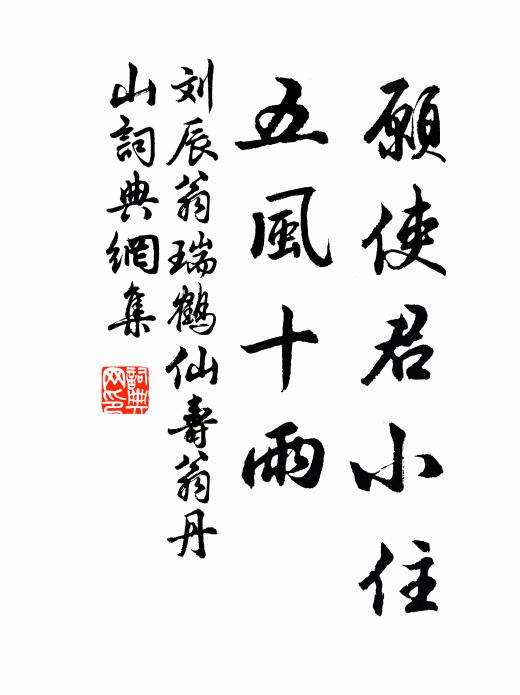 願使君小住
五風十雨
刘辰翁瑞鶴仙壽翁丹
山詞典網集
詞典
网印